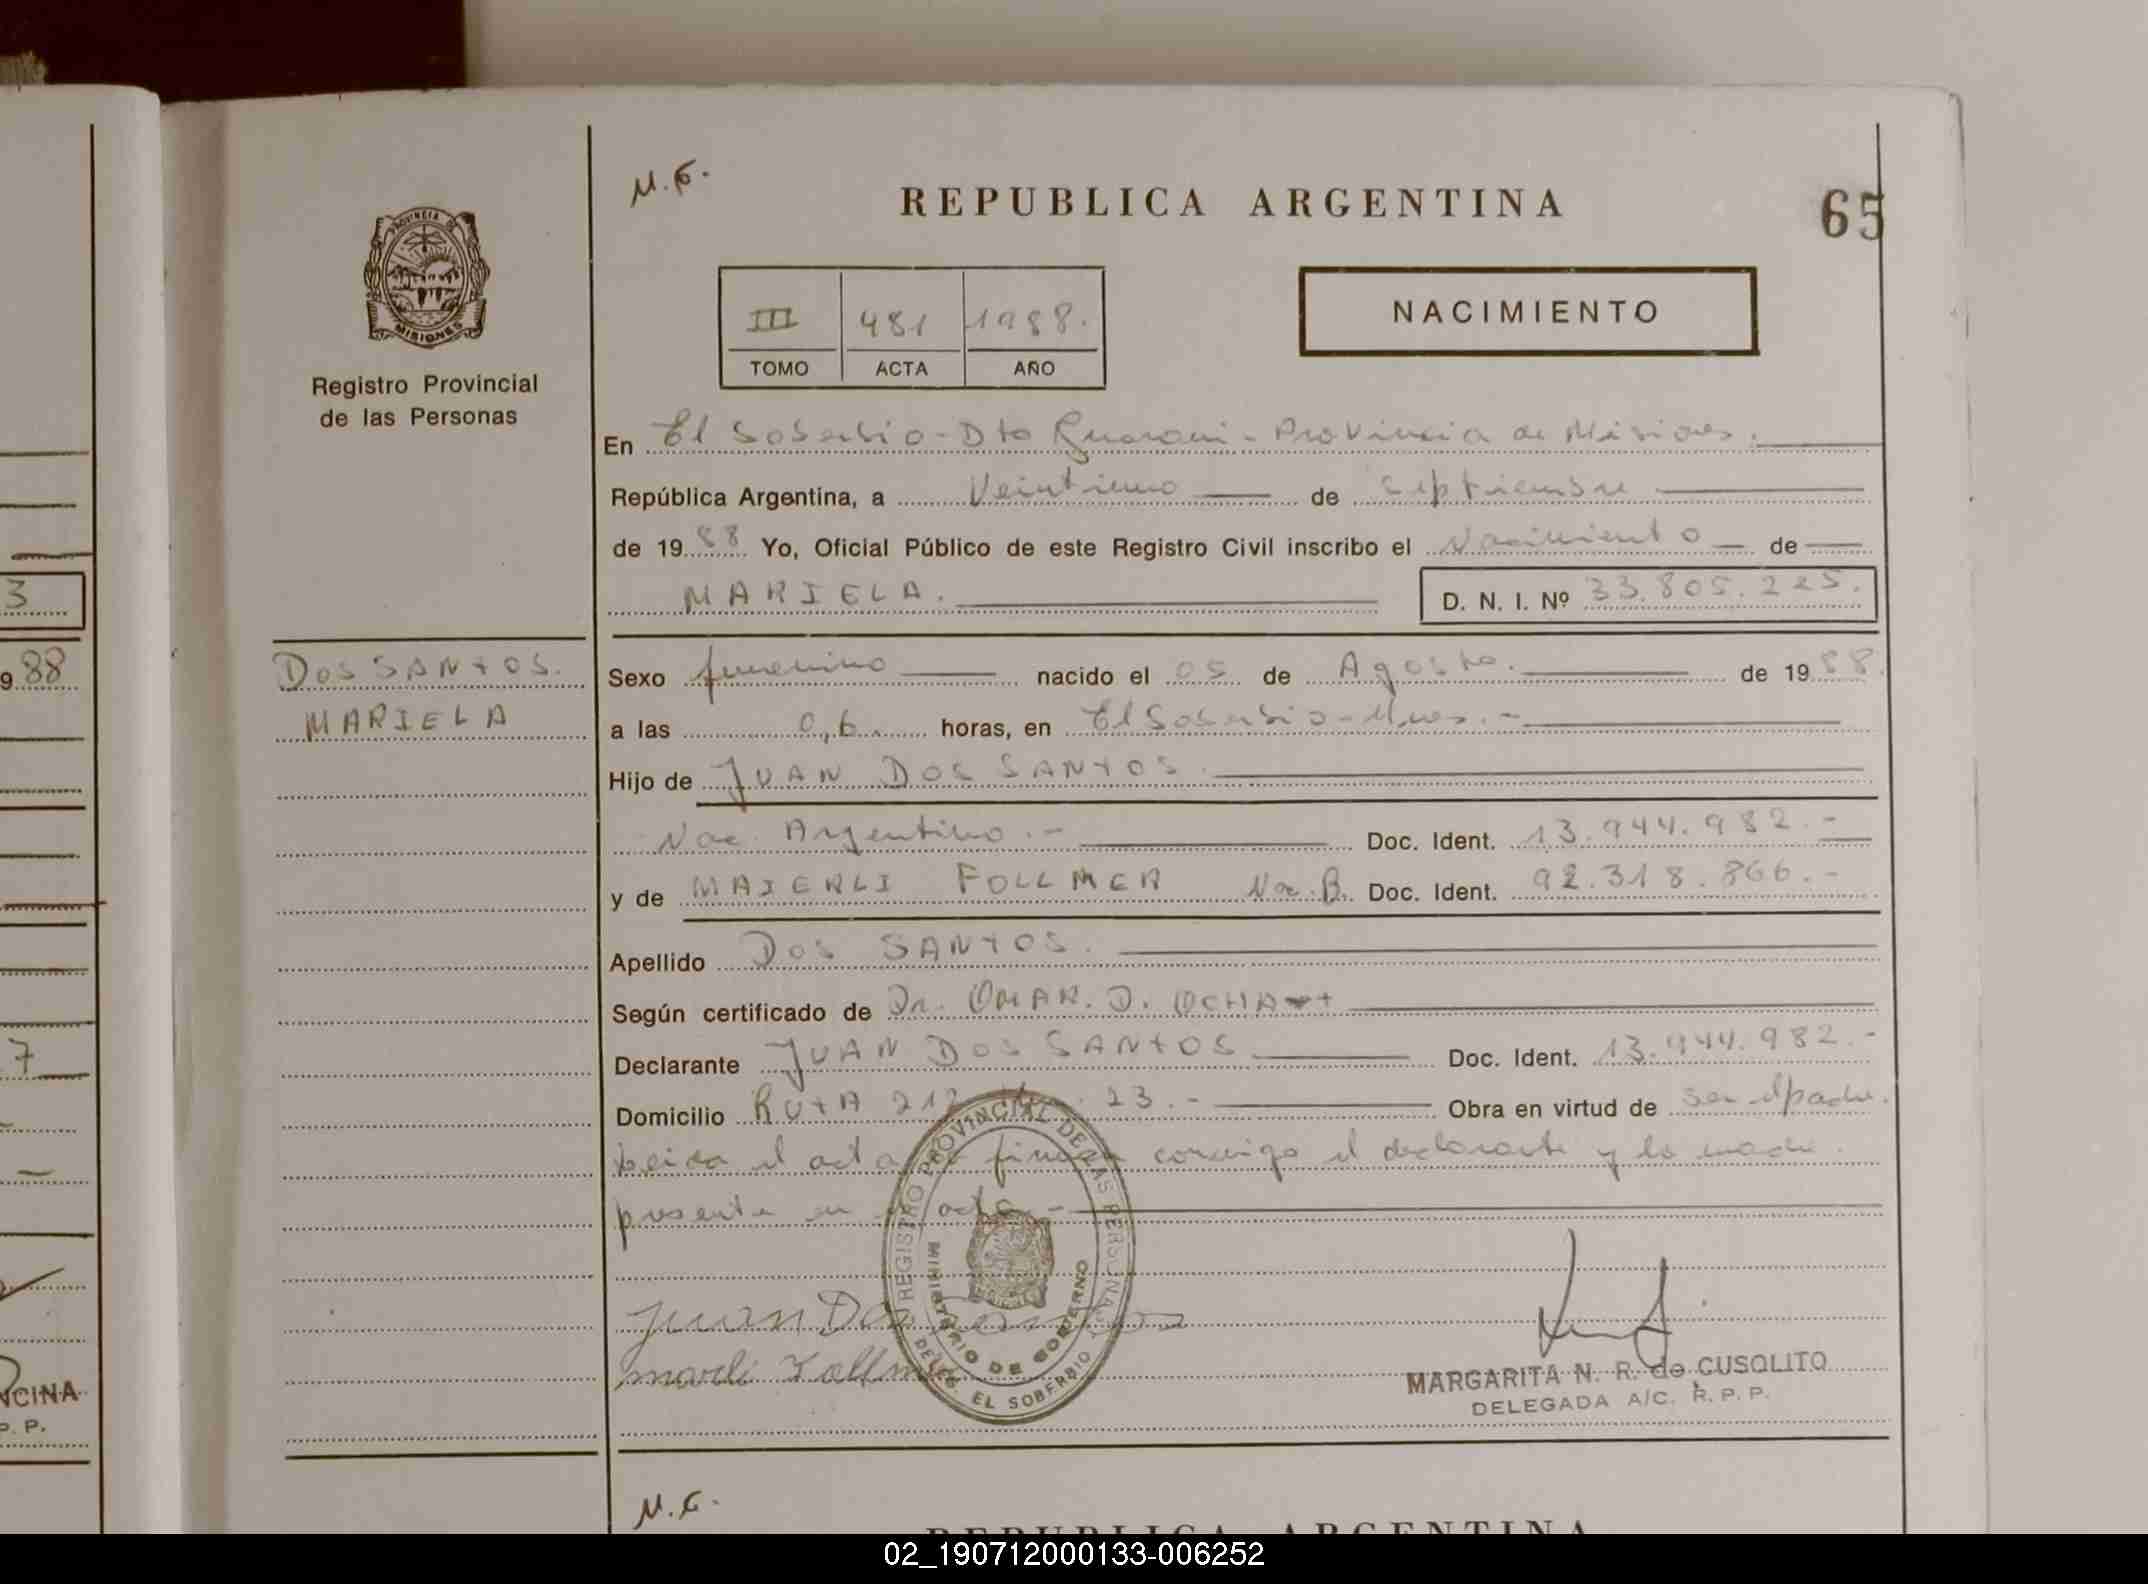 M.G.
REPUBLICA ARGENTINA
65
PROVINCIA DE
MISIONES
Registro Provincial
de las Personas
III 481 1988.
TOMO ACTA AÑO
NACIMIENTO
En El Soberbio - Dto Guarani - Provincia de Misiones.
República Argentina, a Veintiuno de Septiembre
de 1988 Yo, Oficial Público de este Registro Civil inscribo el Nacimiento de
MARIELA. D. N. I. Nº 33.805.225.
3
988
DOS SANTOS.
MARIELA
Sexo femenino nacido el 05 de Agosto. de 1988.
a las 0,6 horas, en El Soberbio - Mnes.-
Hijo de JUAN DOS SANTOS.
Nac. Argentino.- Doc. Ident. 13.944.982.-
y de MAIERLI FOLLMER Nac. B. Doc. Ident. 92.318.866.-
Apellido DOS SANTOS.
Según certificado de Dr. OMAR. D. OCHA
Declarante JUAN DOS SANTOS Doc. Ident. 13.944.982.-
7
Domicilio RUTA 212 23.- Obra en virtud de Ser el padre.
Leida el acta firman conmigo el declarante y la madre.
presente en acto.-
REGISTRO PROVINCIAL DE LAS PERSONAS
MINISTERIO DE GOBIERNO
DELEG. EL SOBERBIO
Juan Dos Santos
marli Follmer
NCINA
P. P.
MARGARITA N. R. de CUSOLITO
DELEGADA A/C. R. P. P.
M.G.
REPUBLICA ARGENTINA
02_190712000133-006252